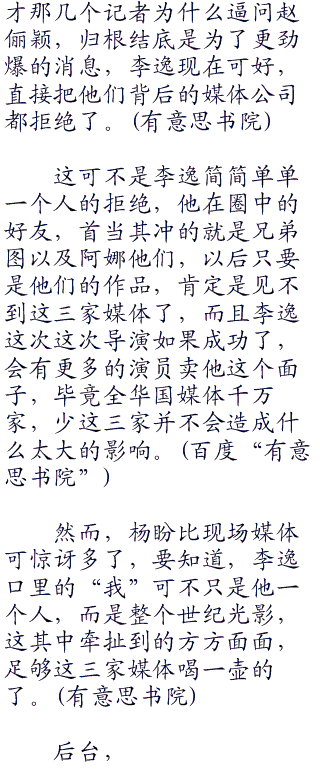 才那几个记者为什么逼问赵
俪颖，归根结底是为了更劲
爆的消息，李逸现在可好，
直接把他们背后的媒体公司
都拒绝了。（有意思书院）
这可不是李逸简简单单
一个人的拒绝，他在圈中的
好友，首当其冲的就是兄弟
图以及阿娜他们，以后只要
是他们的作品，肯定是见不
到这三家媒体了，而且李逸
这次这次导演如果成功了，
会有更多的演员卖他这个面
子，毕竟全华国媒体千万
家，少这三家并不会造成什
么太大的影响。（百度“有意
思书院”）
然而，杨盼比现场媒体
可惊讶多了，要知道，李逸
口里的“我”可不只是他一
个人，而是整个世纪光影，
这其中牵扯到的方方面面，
足够这三家媒体喝一壶的
了。（有意思书院）
后台，